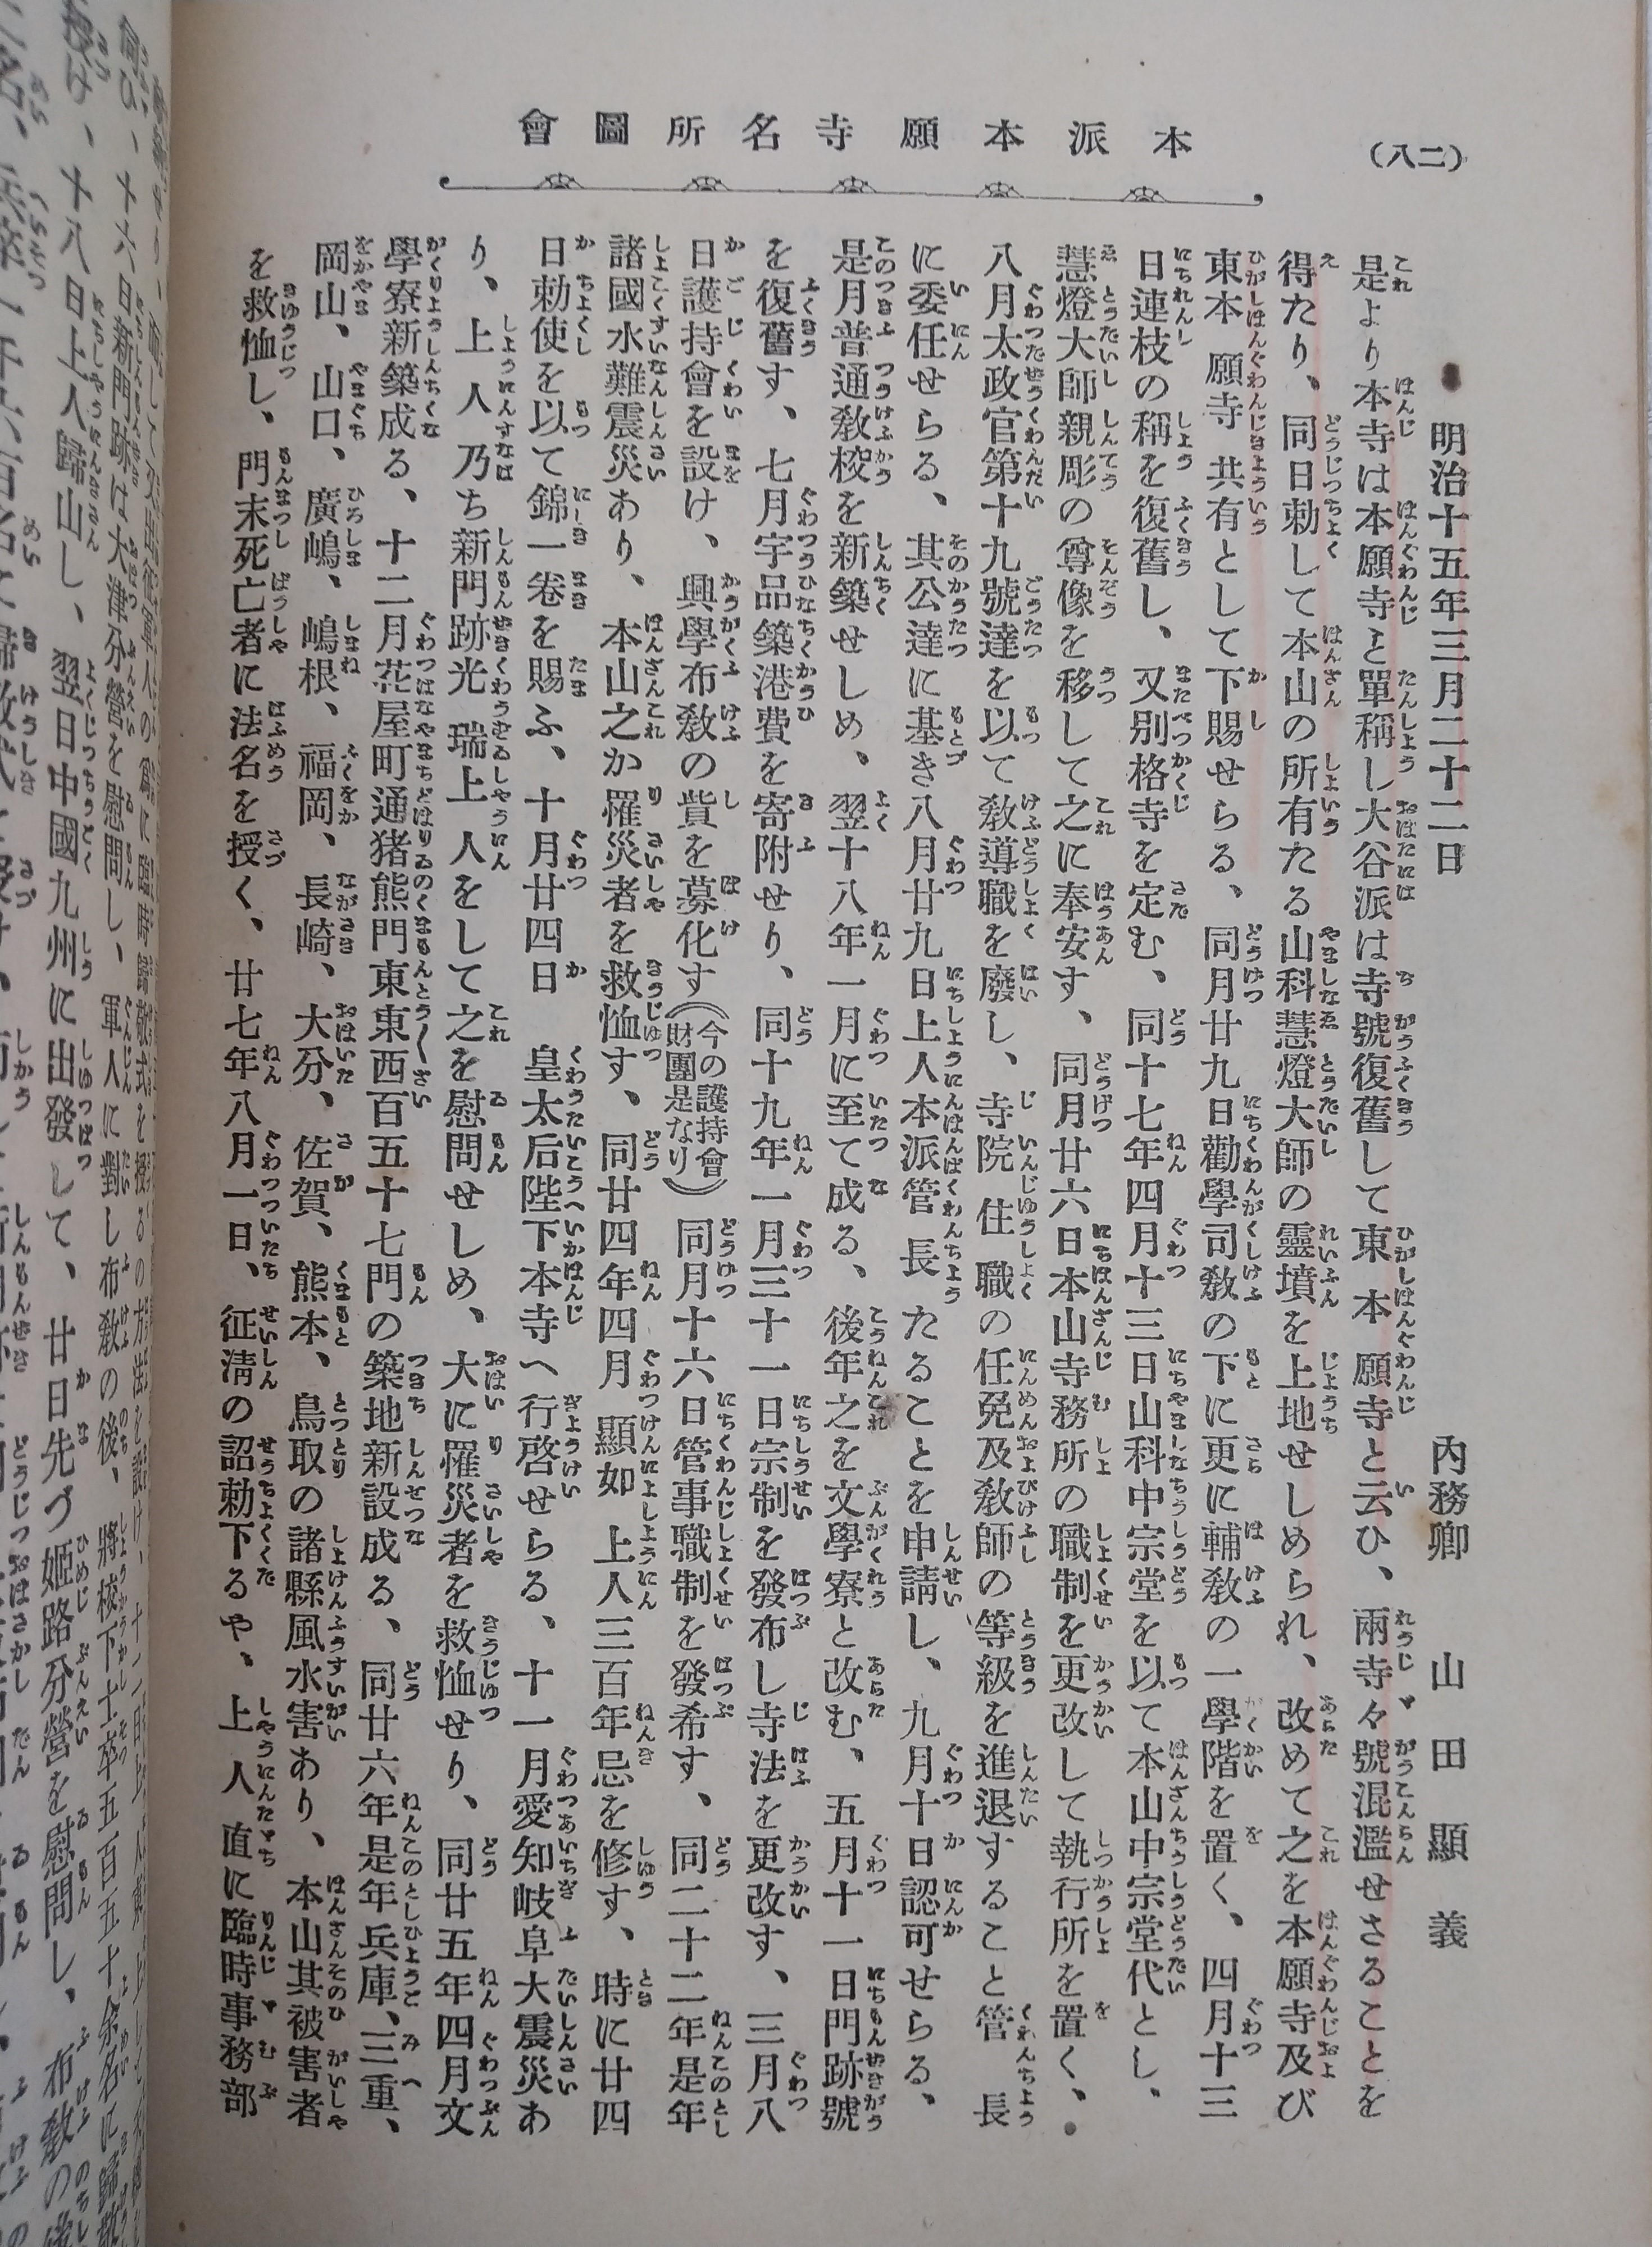 (八二)
本派本願寺名所圖會
明治十五年三月二十二日　内務卿　山田顯義
是より本寺は本願寺と單稱し大谷派は寺號復舊して東本願寺と云ひ、兩寺々號混濫せさることを
得たり、同日勅して本山の所有たる山科慧燈大師の靈墳を上地せしめられ、改めて之を本願寺及び
東本願寺共有として下賜せらる、同月廿九日勸學司敎の下に更に輔敎の一學階を置く、四月十三
日連枝の稱を復舊し、又別格寺を定む、同十七年四月十三日山科中宗堂を以て本山中宗堂代とし、
慧燈大師親彫の尊像を移して之に奉安す、同月廿六日本山寺務所の職制を更改して執行所を置く、
八月太政官第十九號達を以て敎導職を廢し、寺院住職の任免及敎師の等級を進退すること管長
に委任せらる、其公達に基き八月廿九日上人本派管長たることを申請し、九月十日認可せらる、
是月普通敎校を新築せしめ、翌十八年一月に至て成る、後年之を文學寮と改む、五月十一日門跡號
を復舊す、七月宇品築港費を寄附せり、同十九年一月三十一日宗制を發布し寺法を更改す、三月八
日護持會を設け、興學布敎の貲を募化す(今の護持會財團是なり)同月十六日管事職制を發希す、同二十二年是年
諸國水難震災あり、本山之か罹災者を救恤す、同廿四年四月顯如上人三百年忌を修す、時に廿四
日勅使を以て錦一卷を賜ふ、十月廿四日　皇太后陛下本寺へ行啓せらる、十一月愛知岐阜大震災あ
り、上人乃ち新門跡光瑞上人をして之を慰問せしめ、大に罹災者を救恤せり、同廿五年四月文
學寮新築成る、十二月花屋町通猪熊門東東西百五十七門の築地新設成る、同廿六年是年兵庫、三重、
岡山、山口、廣嶋、嶋根、福岡、長崎、大分、佐賀、熊本、鳥取の諸縣風水害あり、本山其被害者
を救恤し、門末死亡者に法名を授く、廿七年八月一日、征淸の詔勅下るや、上人直に臨時事務部